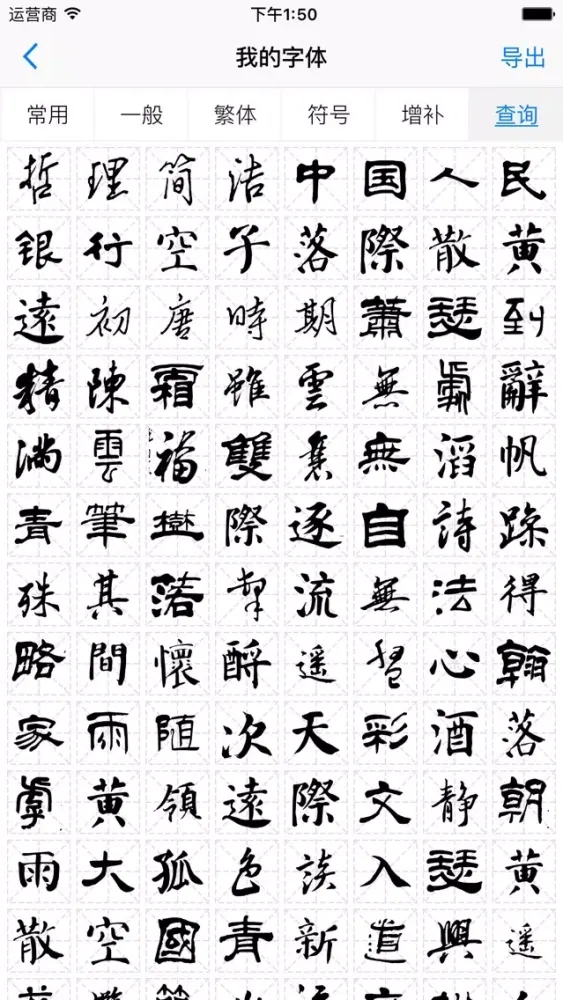 运营商 下午1:50
我的字体 导出
常用 一般 繁体 符号 增补 查询
哲 理 简 洁 中 国 人 民
银 行 空 子 落 際 散 黄
遠 初 唐 時 期 蕭 瑟 到
精 陳 霜 雖 雲 無 處 辭
满 雲 福 雙 無 滔 帆
青 筆 樹 際 逐 自 詩 躁
殊 其 落 掣 流 無 法 得
略 間 懷 酹 遥 心 翰
家 雨 随 次 天 彩 酒 落
黄 領 遠 際 文 静 朝
雨 大 孤 色 談 入 瑟 黄
散 空 國 青 新 道 興 遥